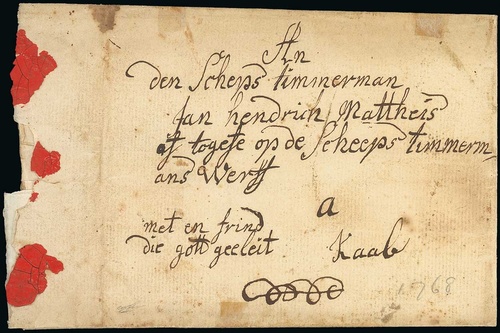 An
den Scheps timmerman
Jan hendrich Mattheis
togefe op de Scheeps timmerm
ans Werff
a
met en frind
die gott geeleit
Kaab
1768